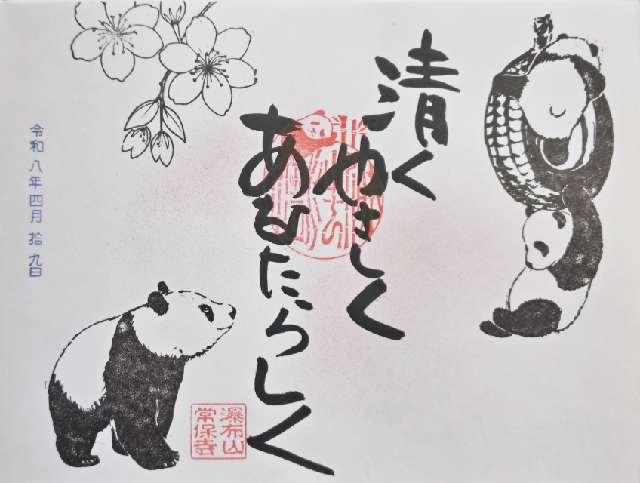 清く
やさしく
あなたらしく
瀑布山
常保寺
令和八年四月拾九日